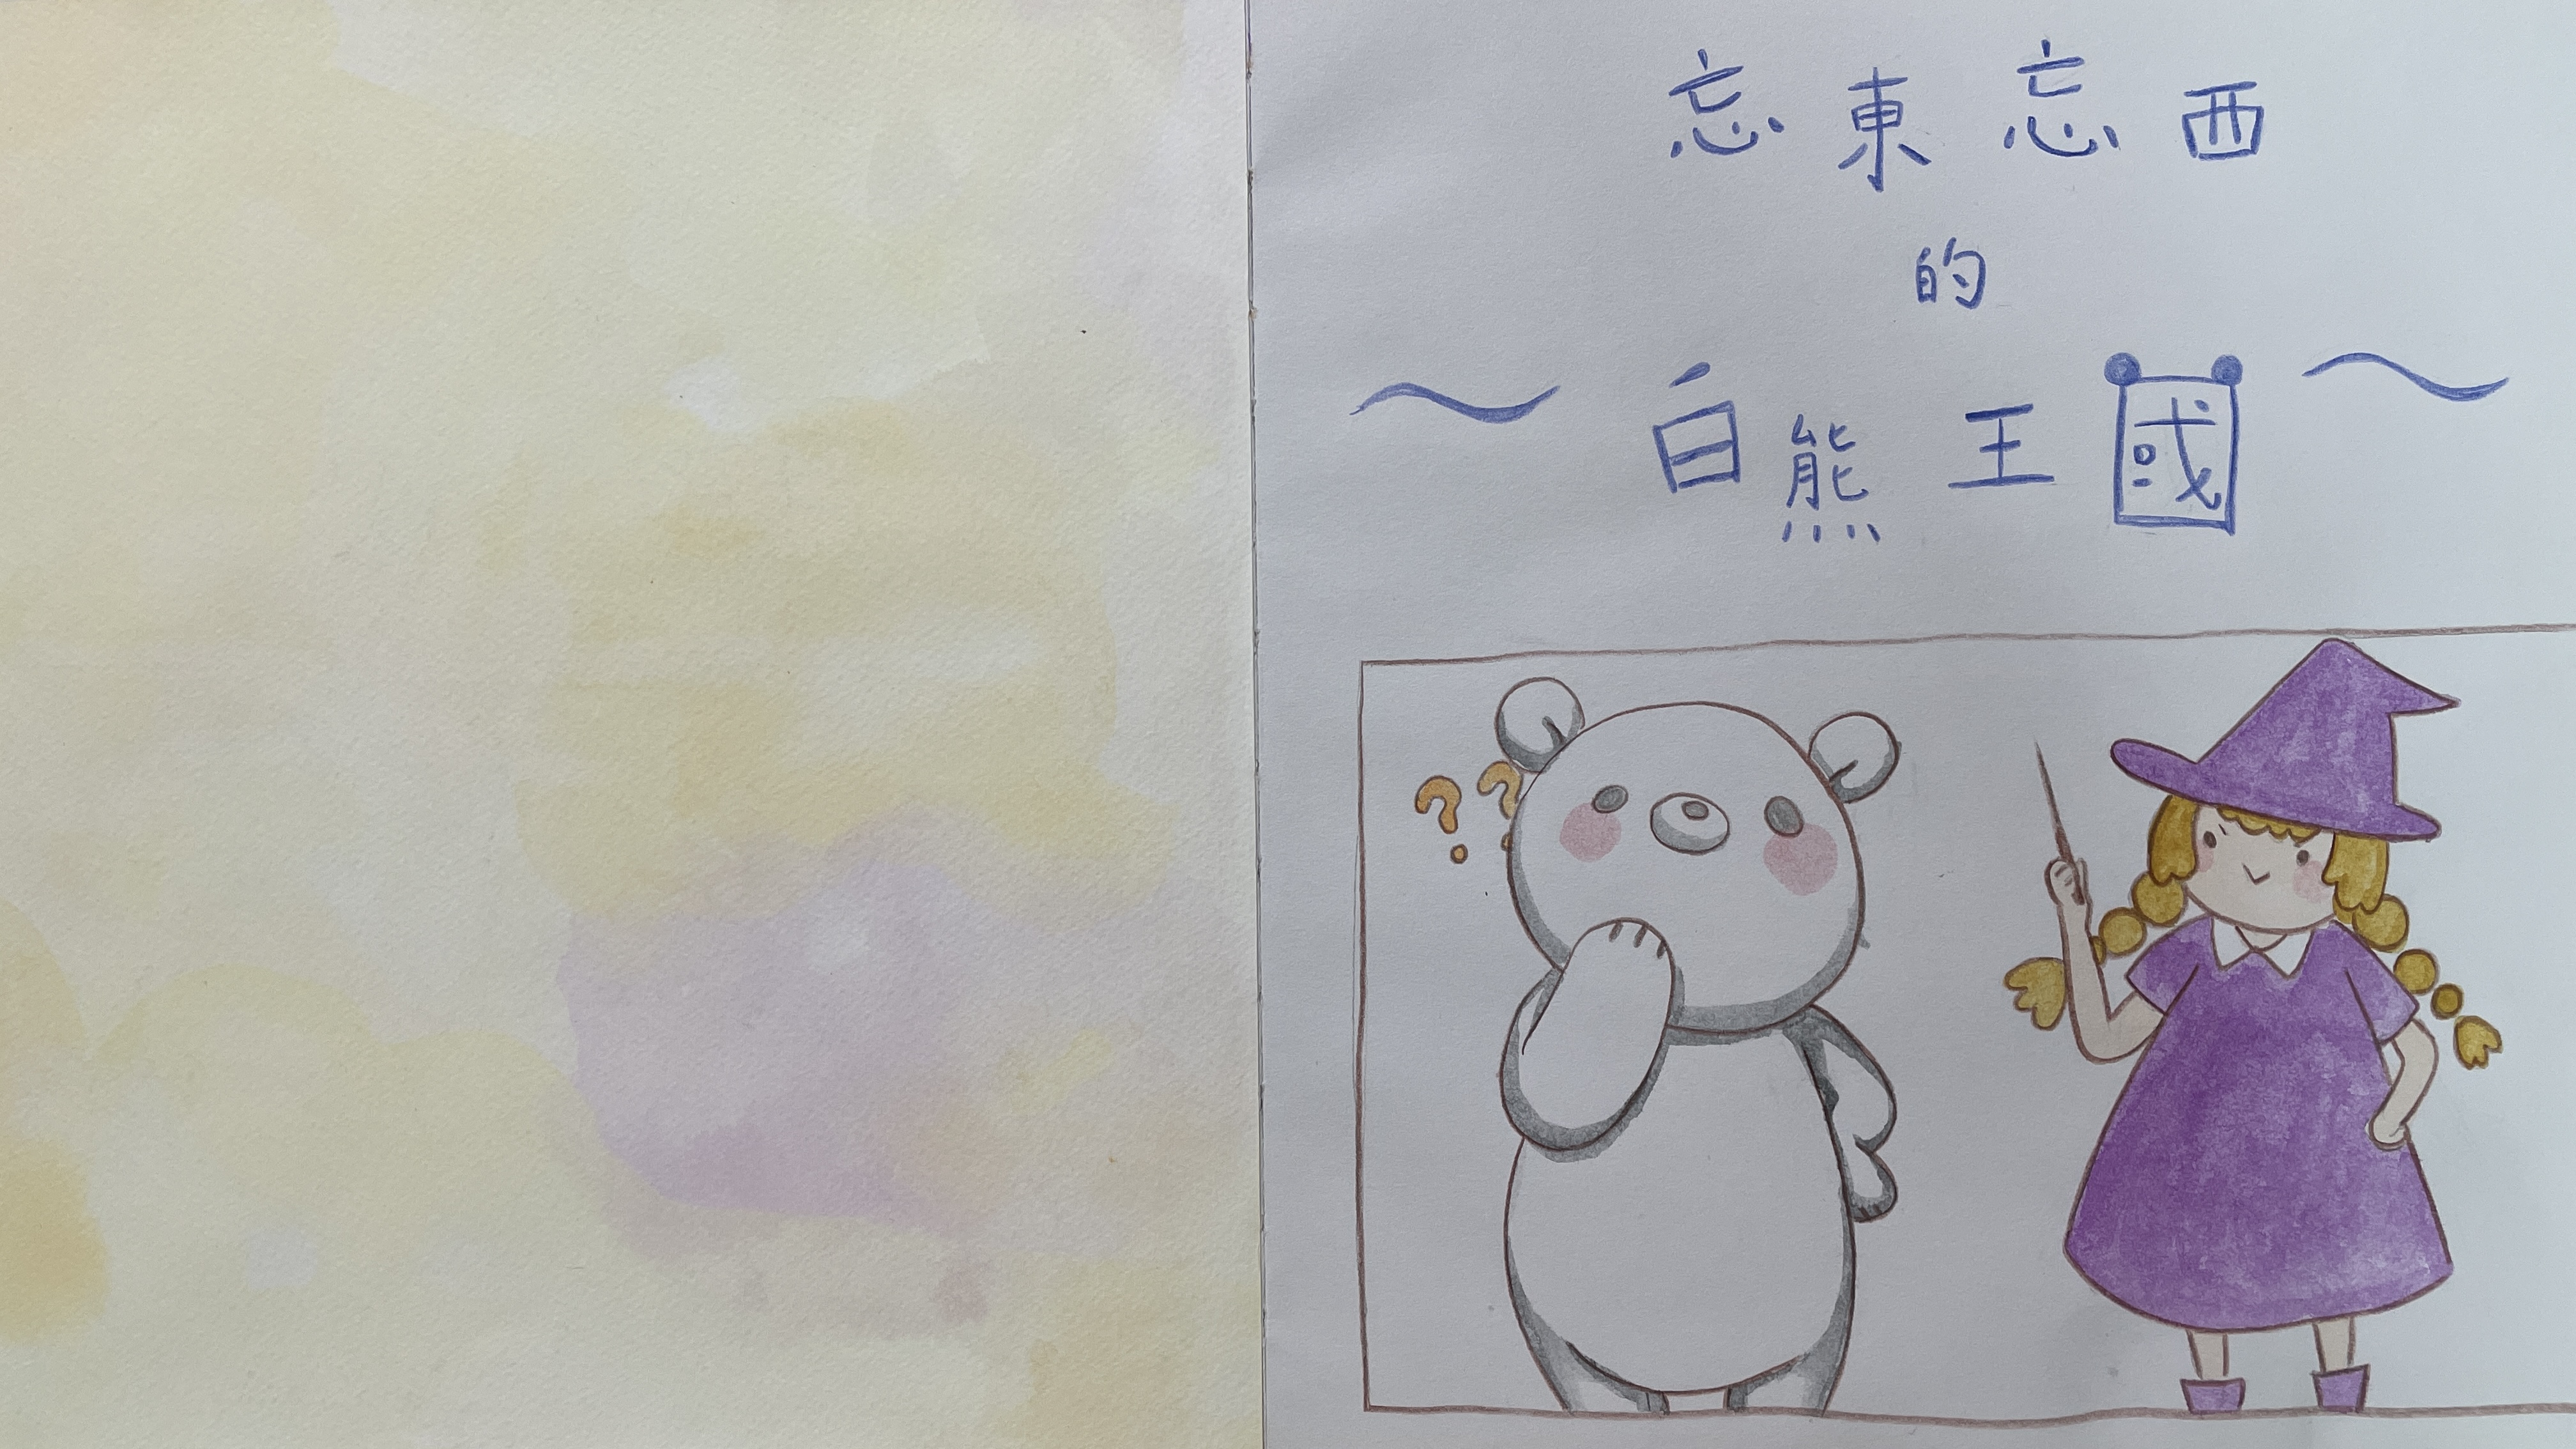 忘東忘西
的
～白熊王國～
??